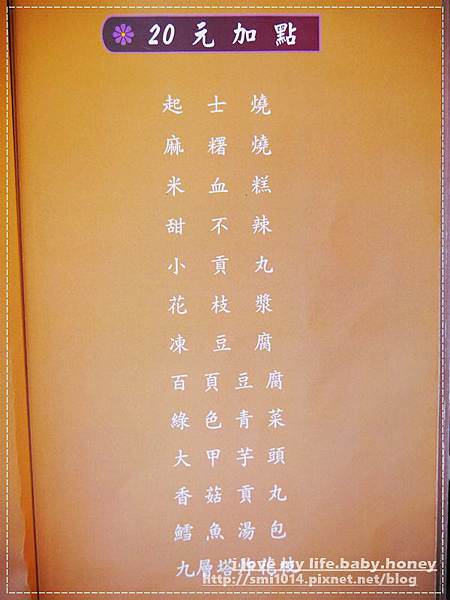 20元加點
起士燒
麻糬燒
米血糕
甜不辣
小貢丸
花枝漿
凍豆腐
百頁豆腐
綠色青菜
大甲芋頭
香菇貢丸
鱈魚湯包
九層塔
i love my life.baby.honey
http://smi1014.pixnet.net/blog